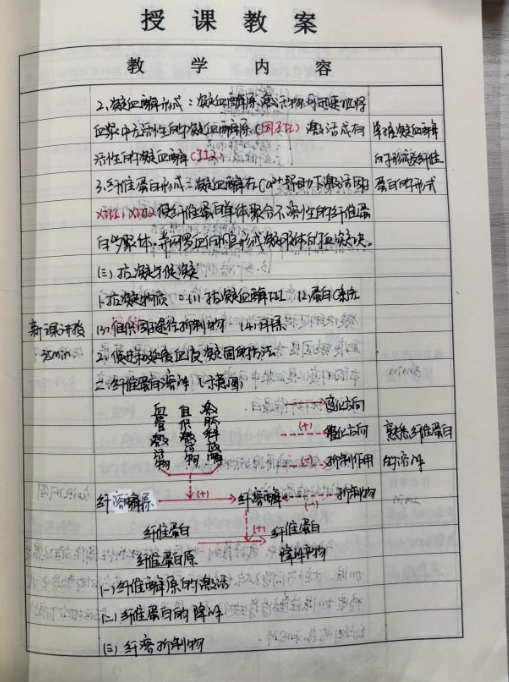 授课教案
教学内容
2.凝血酶形成：凝血酶原激活物可迅速地将
血浆中无活性的凝血酶原(因子II)激活成有 掌握凝血酶
活性的凝血酶(IIa) 的形成及纤维
3.纤维蛋白形成：凝血酶在Ca²⁺帮助下激活因 蛋白的形式
使纤维蛋白单体聚合不溶性的纤维蛋
白多聚体，并网罗血细胞形成凝胶状的血凝块。
(三)抗凝与促凝
1.抗凝物质：(1)抗凝血酶III (2)蛋白C系统
新课讲授 (3)组织因子途径抑制物 (4)肝素
35min 2.促进或延缓血液凝固的方法
二.纤维蛋白溶解(示意图)
血管激活物 血浆激活物
变化方向
(+) 催化方向 熟悉纤维蛋白
(-) 抑制作用 的溶解
纤溶酶原 (+) 纤溶酶 (-) 抑制物
纤维蛋白 (+) 纤维蛋白
纤维蛋白原 降解产物
(一)纤维酶原的激活
(二)纤维蛋白的降解
(三)纤溶抑制物